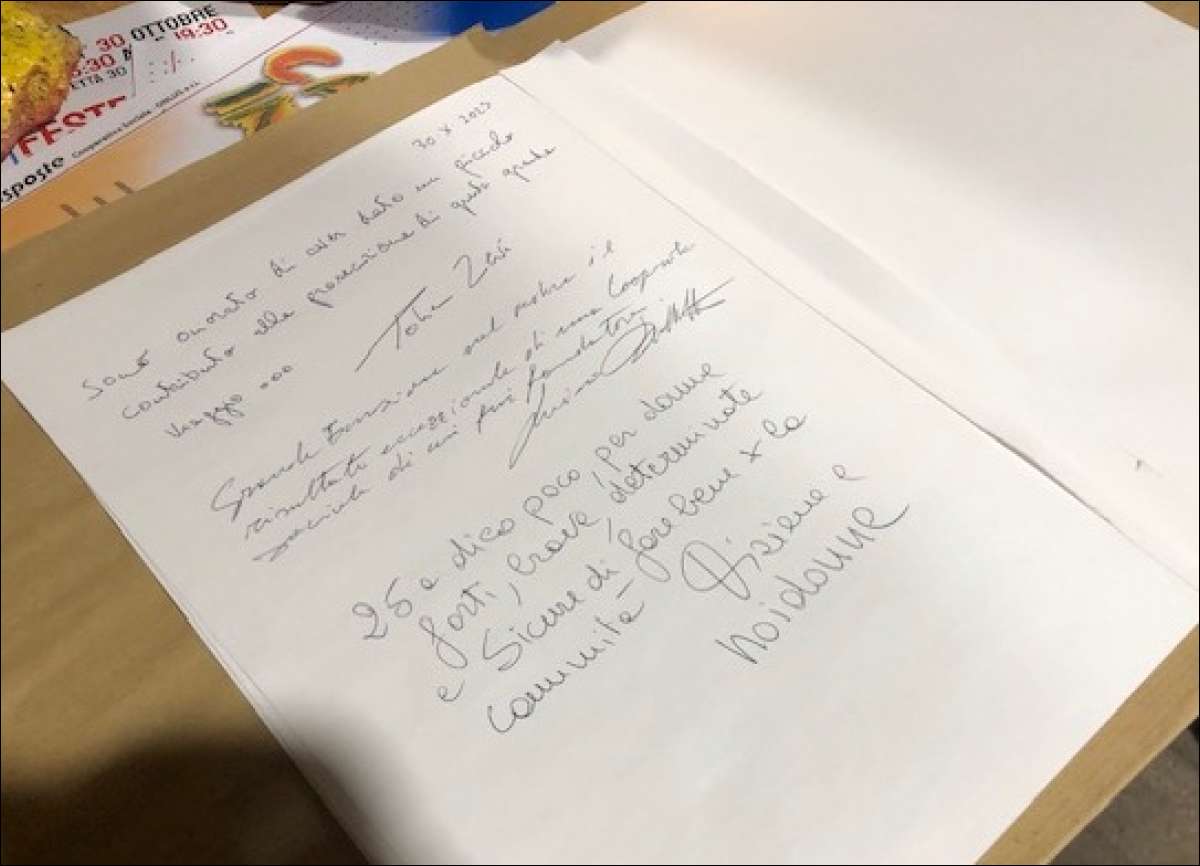 30 OTTOBRE
19:30
ETTA 30
sposte Cooperativa Sociale - ONLUS a r.l.
30 X 2023
Sono onorato di aver dato un piccolo
contributo alla prosecuzione di questo grande
viaggio ...
Grande emozione nel vedere il
risultato eccezionale di una Cooperativa
sociale di cui fui fondatore
25 e dico poco, per donne
forti, brave, determinate
e sicure di fare bene x la
comunità -
noidonne